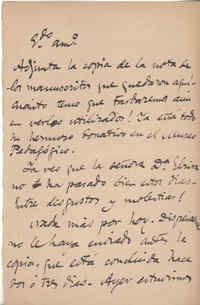 Qdo. amo.
Adjunta la copia de la nota de
los manuscritos que quedaron aquí
¡cuanto temo que tardaremos aún
en verlos utilizados! Ya está todo
su hermoso donativo en el Museo
Pedagógico.
Ya veo que la señora Da.
no lo ha pasado bien estos días
entre disgustos y molestias!
Nada más por hoy. Dispense
no le haya enviado antes la
copia, que está concluida hace
dos ó tres días. Ayer estuvimos